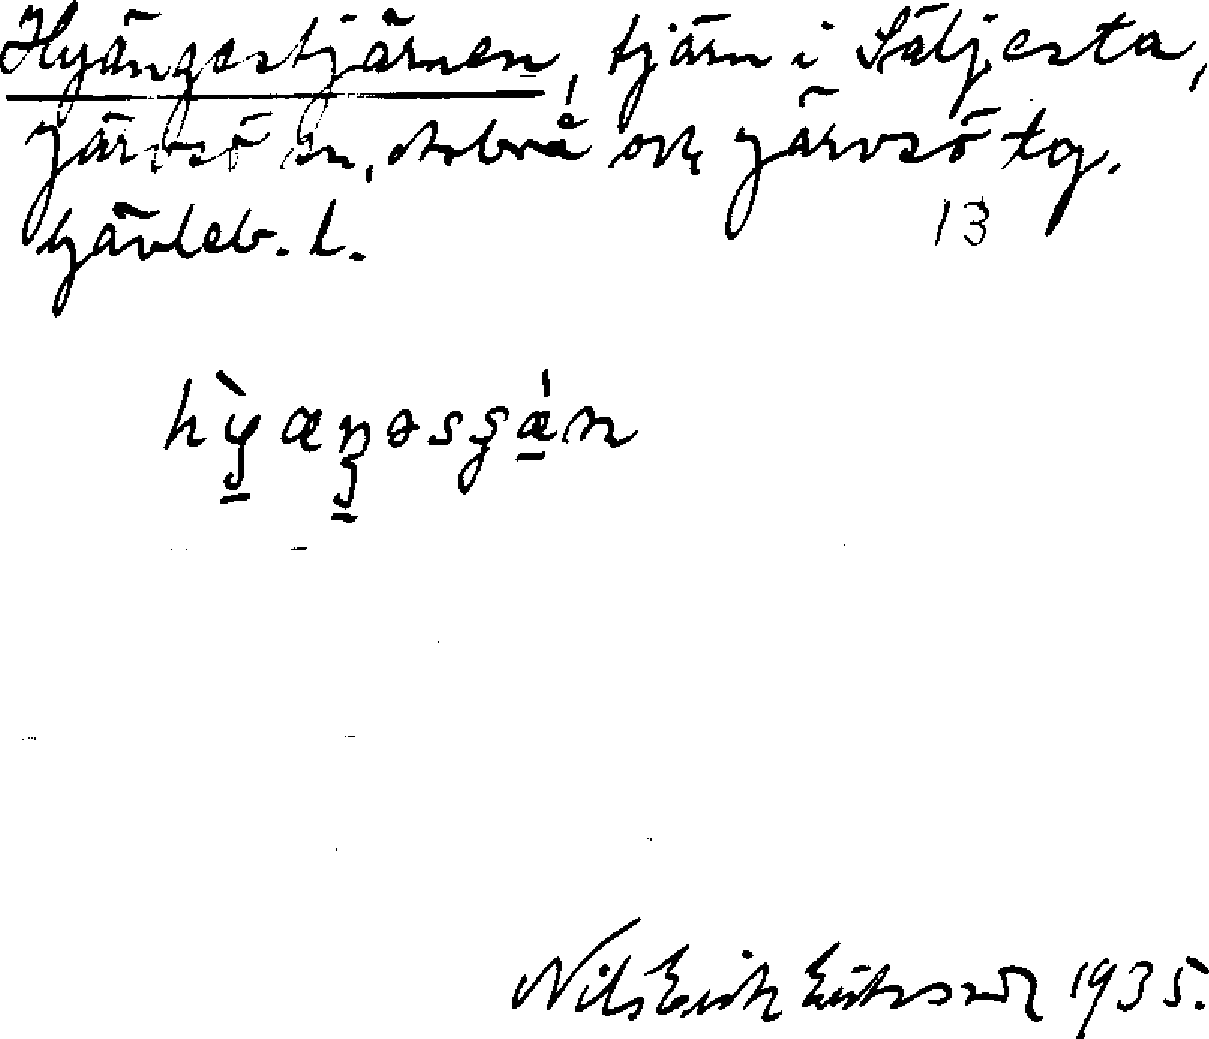 Hyängestjärnen, tjärn i Säljesta,
Järvsö sn, Arbrå och Järvsö tg.
Gävleb. l.
13
Nils Erik Eriksson 1935.